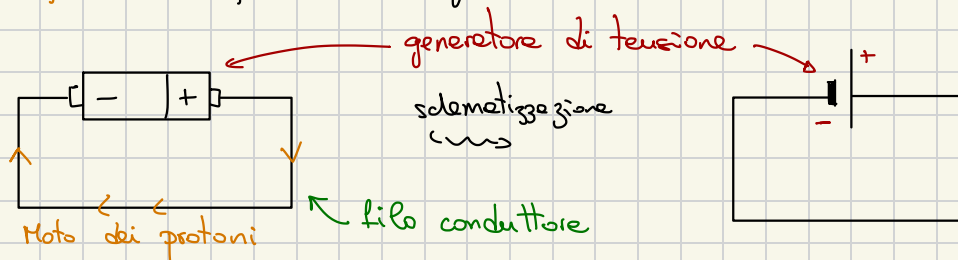 generatore di tensione
- +
schematizzazione
+
-
filo conduttore
Moto dei protoni